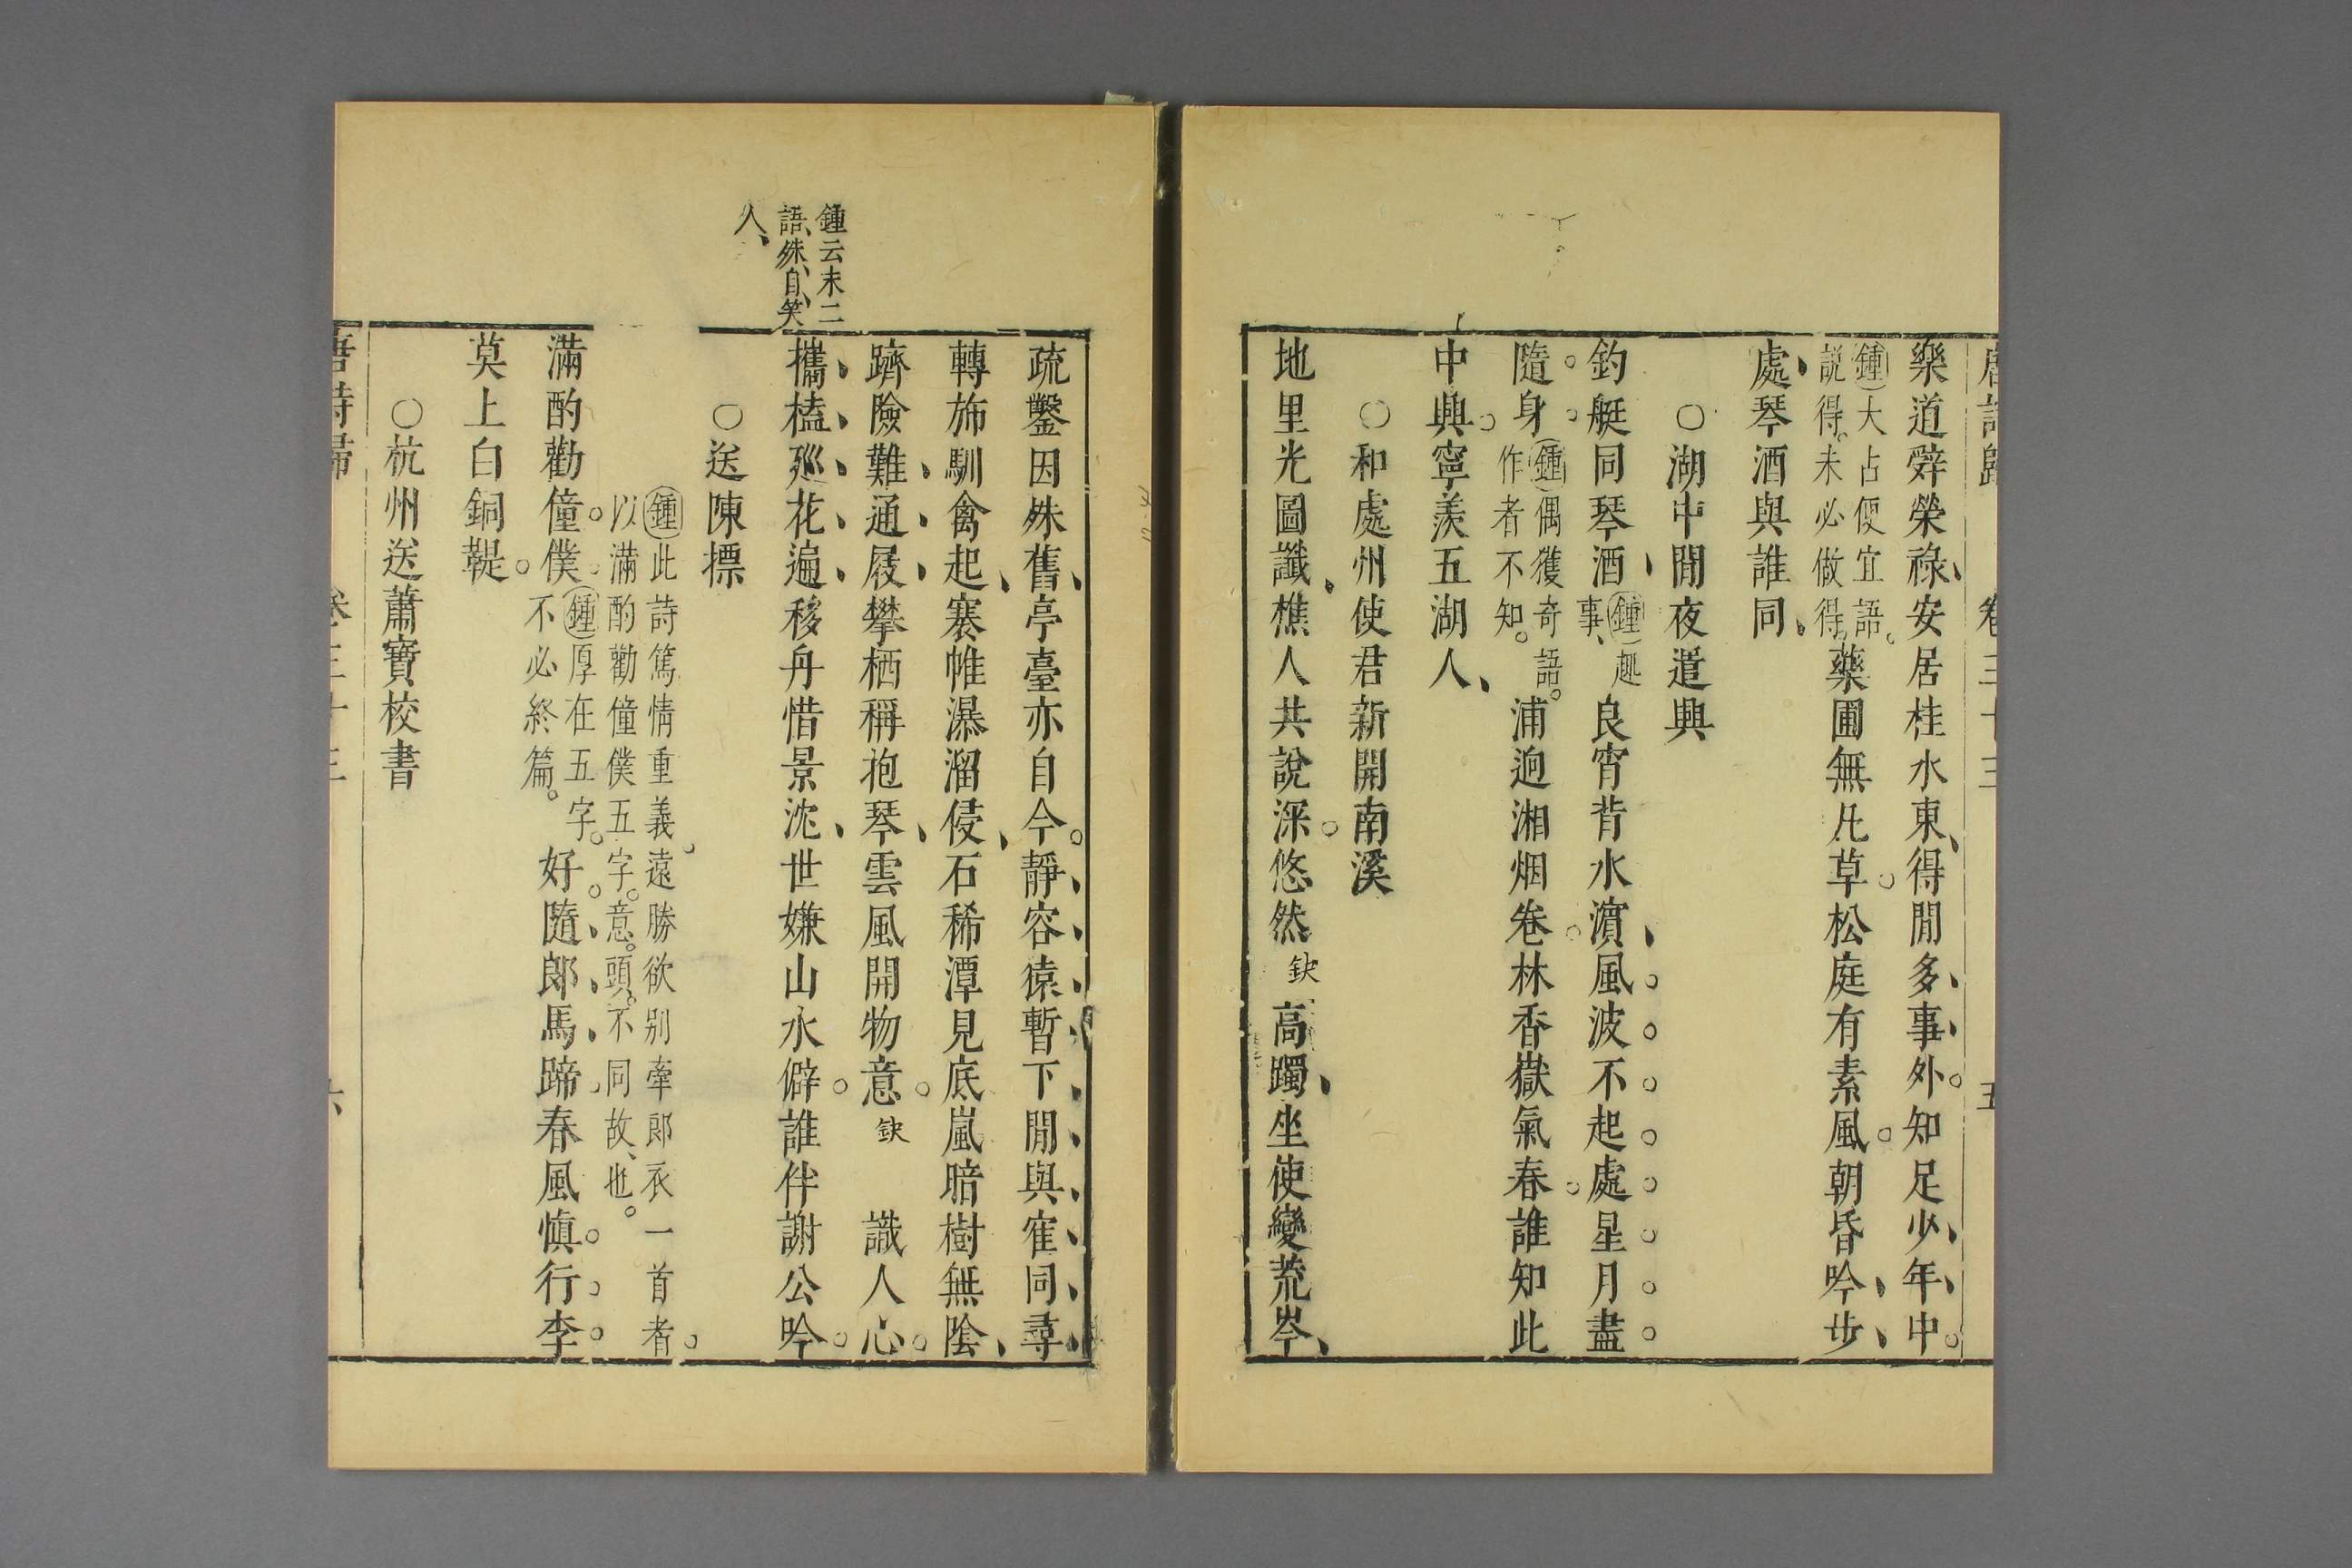 唐詩歸 卷三十三 五
樂道辤榮祿安居桂水東得閒多事外知足少年中
鍾大占便宜語
說得未必做得藥圃無凡草松庭有素風朝昏吟步
處琴酒與誰同
○湖中閒夜遣興
釣艇同琴酒鍾趣事良宵背水濵風波不起處星月盡
隨身鍾偶獲奇語
作者不知浦迥湘烟卷林香嶽氣春誰知此
中興寧羨五湖人
○和處州使君新開南溪
地里光圖讖樵人共說深悠然缺高躅坐使變荒岑
疏鑿因殊舊亭臺亦自今靜容猿暫下閒與寉同尋
轉斾馴禽起褰帷瀑溜侵石稀潭見底嵐暗樹無陰
躋險難通屐攀栖稱抱琴雲風開物意缺 識人心
攜榼廵花遍移舟惜景沈世嫌山水僻誰伴謝公吟
鍾云末二
語殊自笑
人
○送陳摽
鍾此詩篤情重義遠勝欲别牽郞衣一首者
以滿酌勸僮僕五字意頭不同故也
滿酌勸僮僕鍾厚在五字
不必終篇好隨郞馬蹄春風愼行李
莫上白銅鞮
○杭州送蕭寶校書
唐詩歸 卷三十三 六